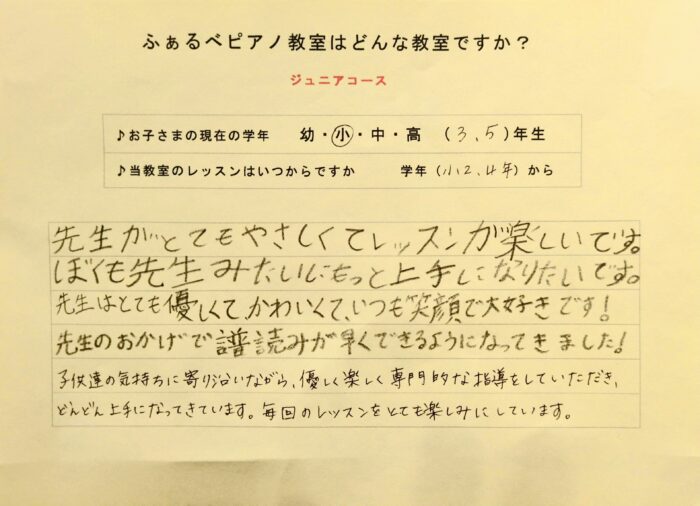 ふぁるべピアノ教室はどんな教室ですか？
ジュニアコース
♪お子さまの現在の学年　幼・小・中・高　（3、5）年生
♪当教室のレッスンはいつからですか　学年（小2、4年）から
先生がとてもやさしくてレッスンが楽しいです。
ぼくも先生みたいにもっと上手になりたいです。
先生はとても優しくて、かわいくて、いつも笑顔で大好きです！
先生のおかげで譜読みが早くできるようになってきました！
子供達の気持ちに寄り沿いながら、優しく楽しく専門的な指導をしていただき、
どんどん上手になってきています。毎回のレッスンをとても楽しみにしています。